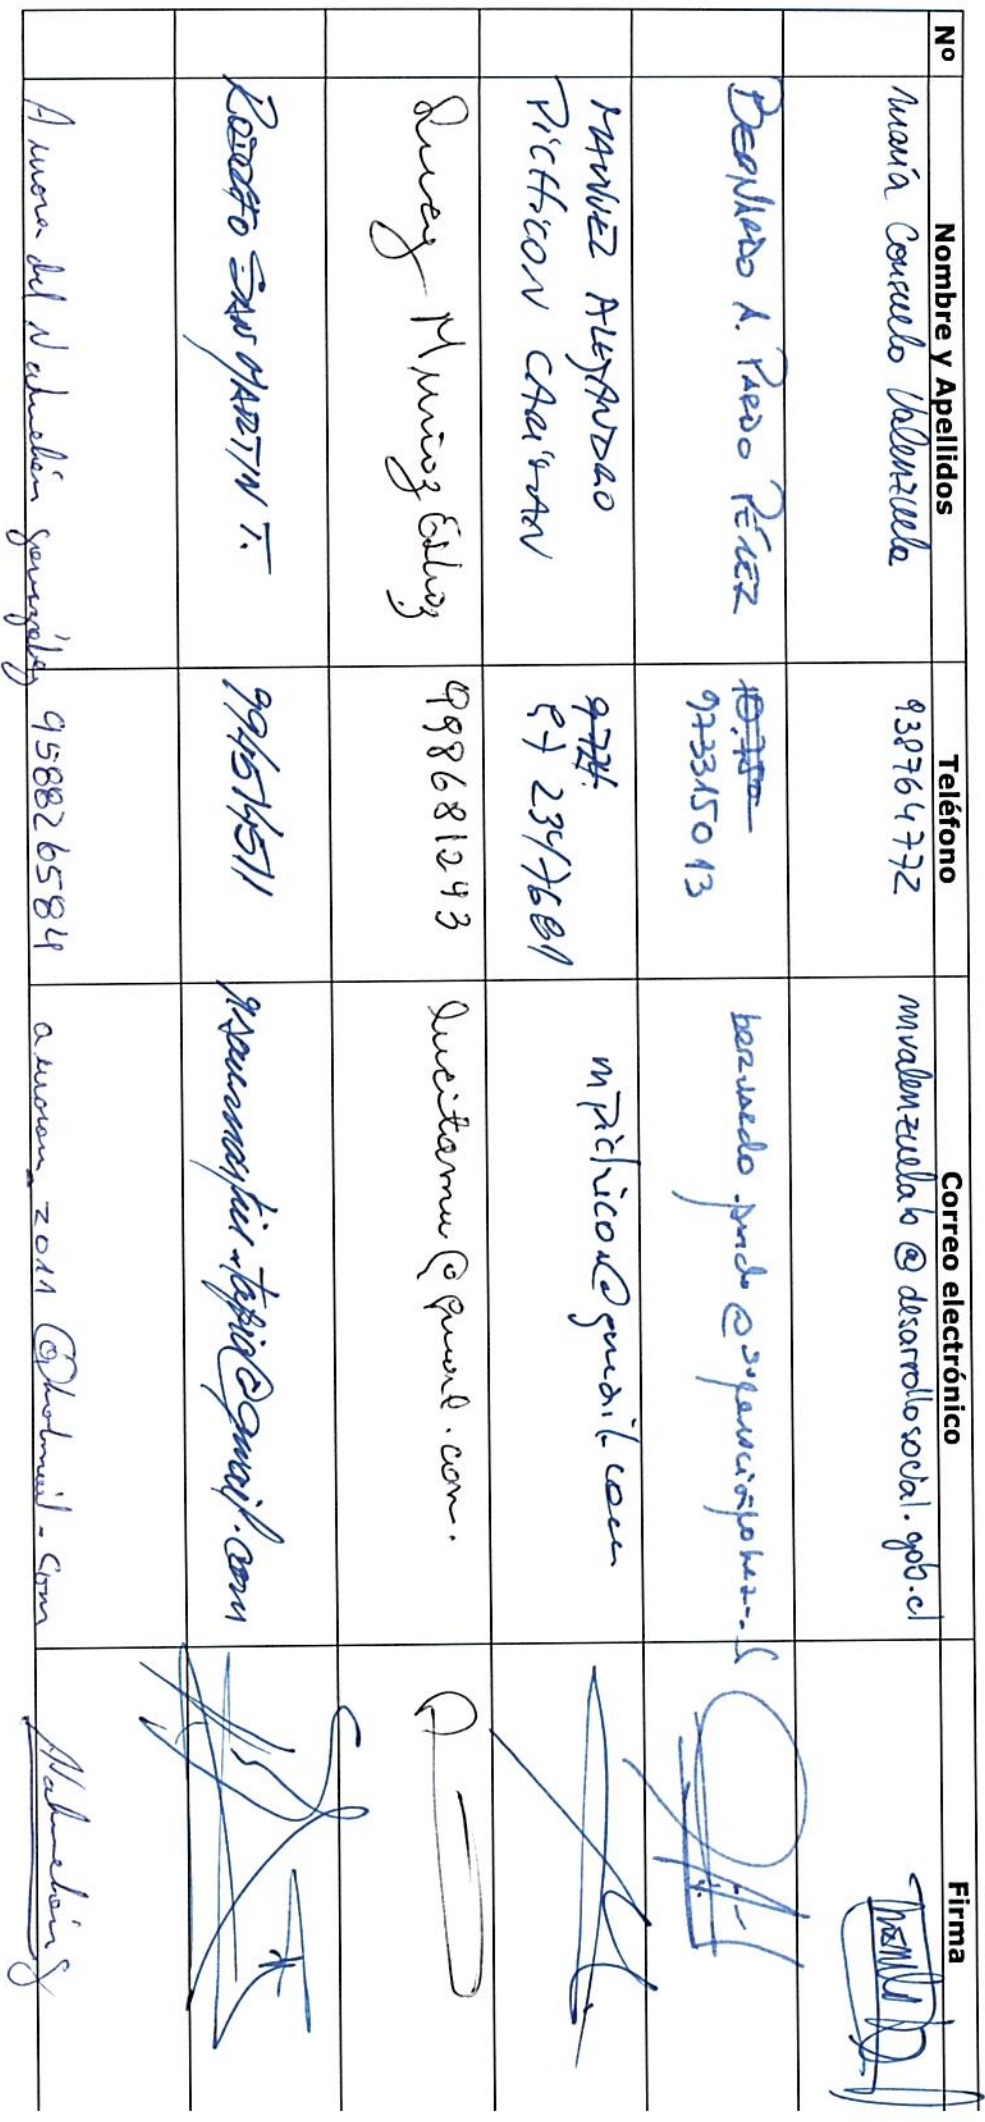 Nº Nombre y Apellidos Teléfono Correo electrónico Firma
María Consuelo Valenzuela 938764772 mvalenzuelab@desarrollosocial.gob.cl
BERNARDO A. PARDO PÉREZ 973315013
MANUEL ALEJANDRO
PICHICON CARISAN 2347681 mpichicon@gmail.com
Lucy Muñoz 998681243 lucitamu@gmail.com.
ROBERTO SAN MARTIN T. 994574511 rsanmartin.tapia@gmail.com
del González 958826584 2011@hotmail.com